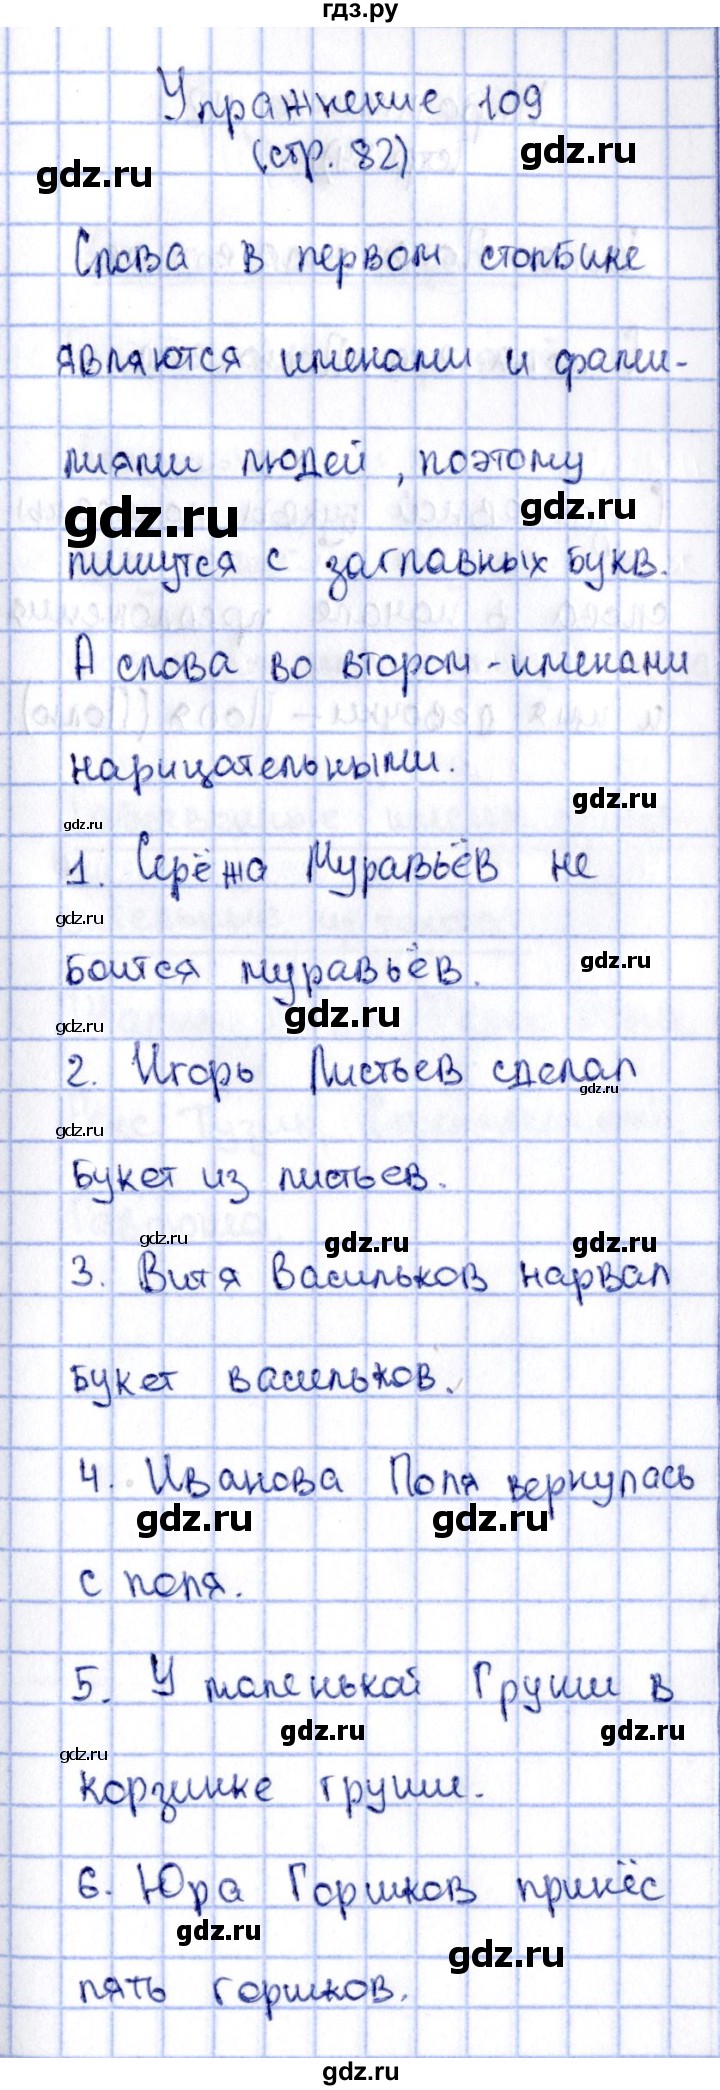 гдз.ру
Упражнение 109
(стр. 82)
gdz.ru
gdz.ru
Слова в первом столбике
являются именами и фами-
лиями людей, поэтому
gdz.ru
gdz.ru
пишутся с заглавных букв.
А слова во втором - именами
нарицательными.
gdz.ru
gdz.ru
1. Серёжа Муравьёв не
gdz.ru
боится муравьёв.
gdz.ru
gdz.ru
gdz.ru
2. Игорь Листьев сделал
gdz.ru
gdz.ru
букет из листьев.
gdz.ru
gdz.ru
gdz.ru
3. Витя Васильков нарвал
букет васильков.
4. Иванова Поля вернулась
gdz.ru
gdz.ru
с поля.
5. У маленькой Груши в
gdz.ru
gdz.ru
gdz.ru
корзинке груши.
6. Юра Горшков принёс
gdz.ru
gdz.ru
пять горшков.
gdz.ru